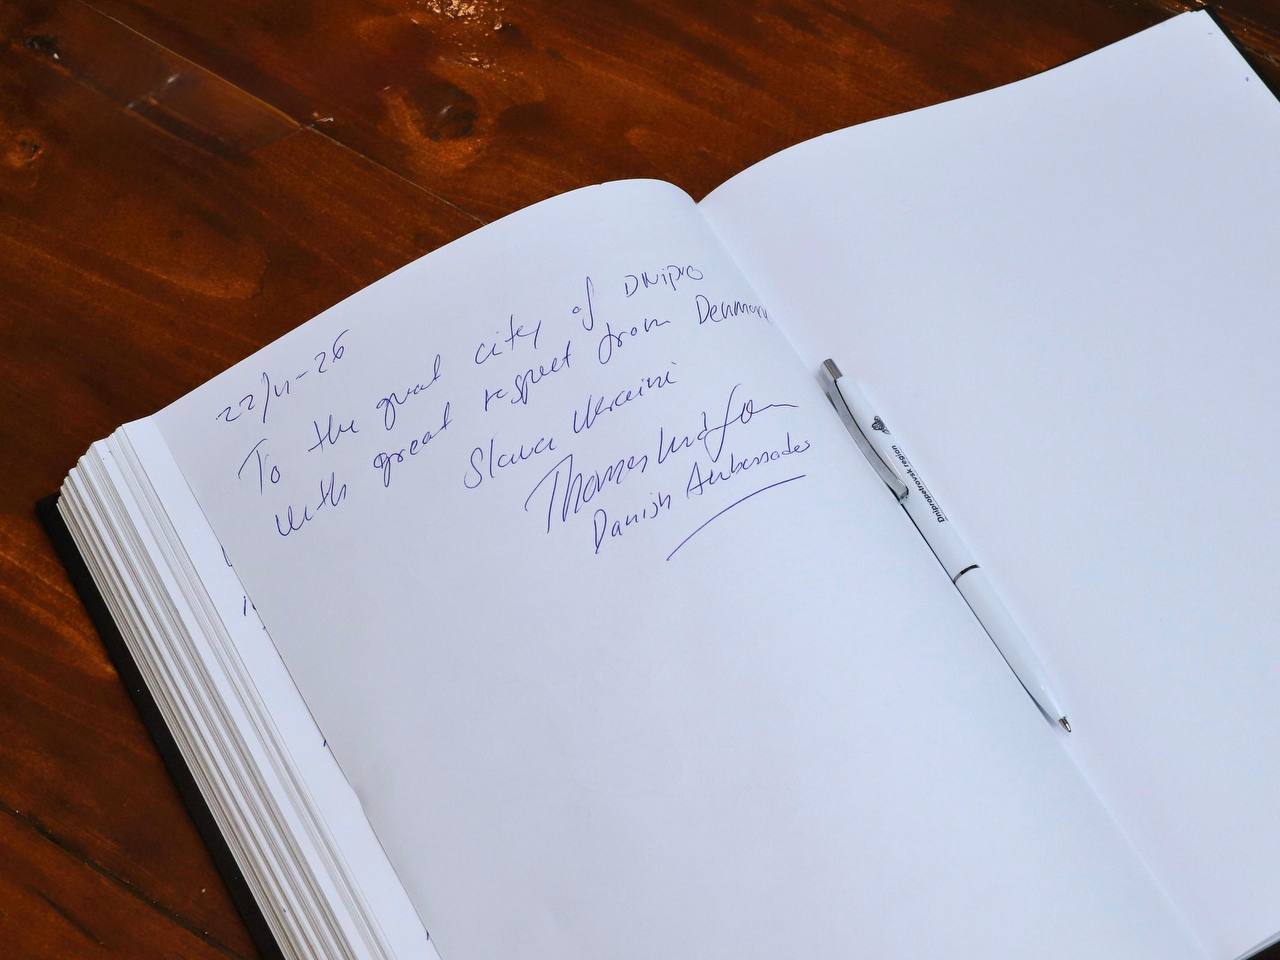 22/4-26
To the great city of Dnipro
with great respect from Denmark
Slava Ukraini
Thomas
Danish Ambassador
Dnipropetrovsk region